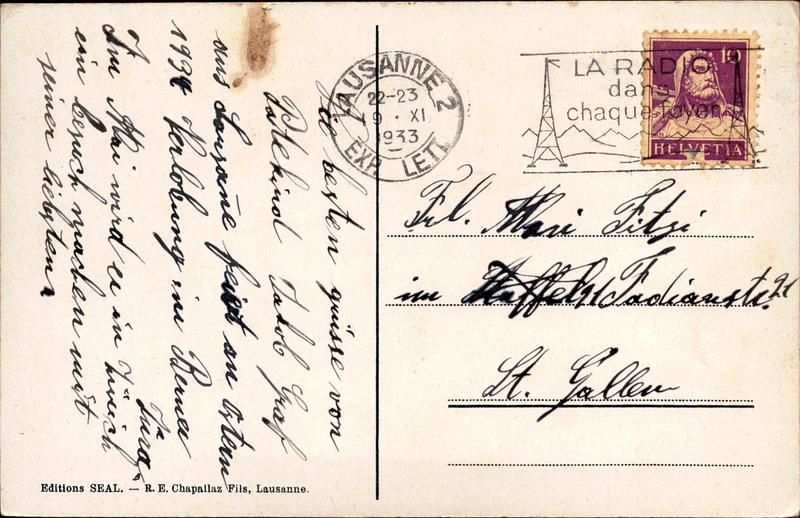 Die besten grüsse von
Patekind Jakob Graf
aus Lausanne feiert an Ostern
1934 Verlobung in Berner
Jura
Im Mai wird er in Zürich
ein besuch machen mit
seiner liebsten
LAUSANNE 2
22-23
9 · XI
1933
EXP. LETT.
LA RADIO
dans
chaque foyer
10
HELVETIA
Frl. Mari Fitzi
im Vadianstr. 21
St. Gallen
Editions SEAL. — R. E. Chapallaz Fils, Lausanne.